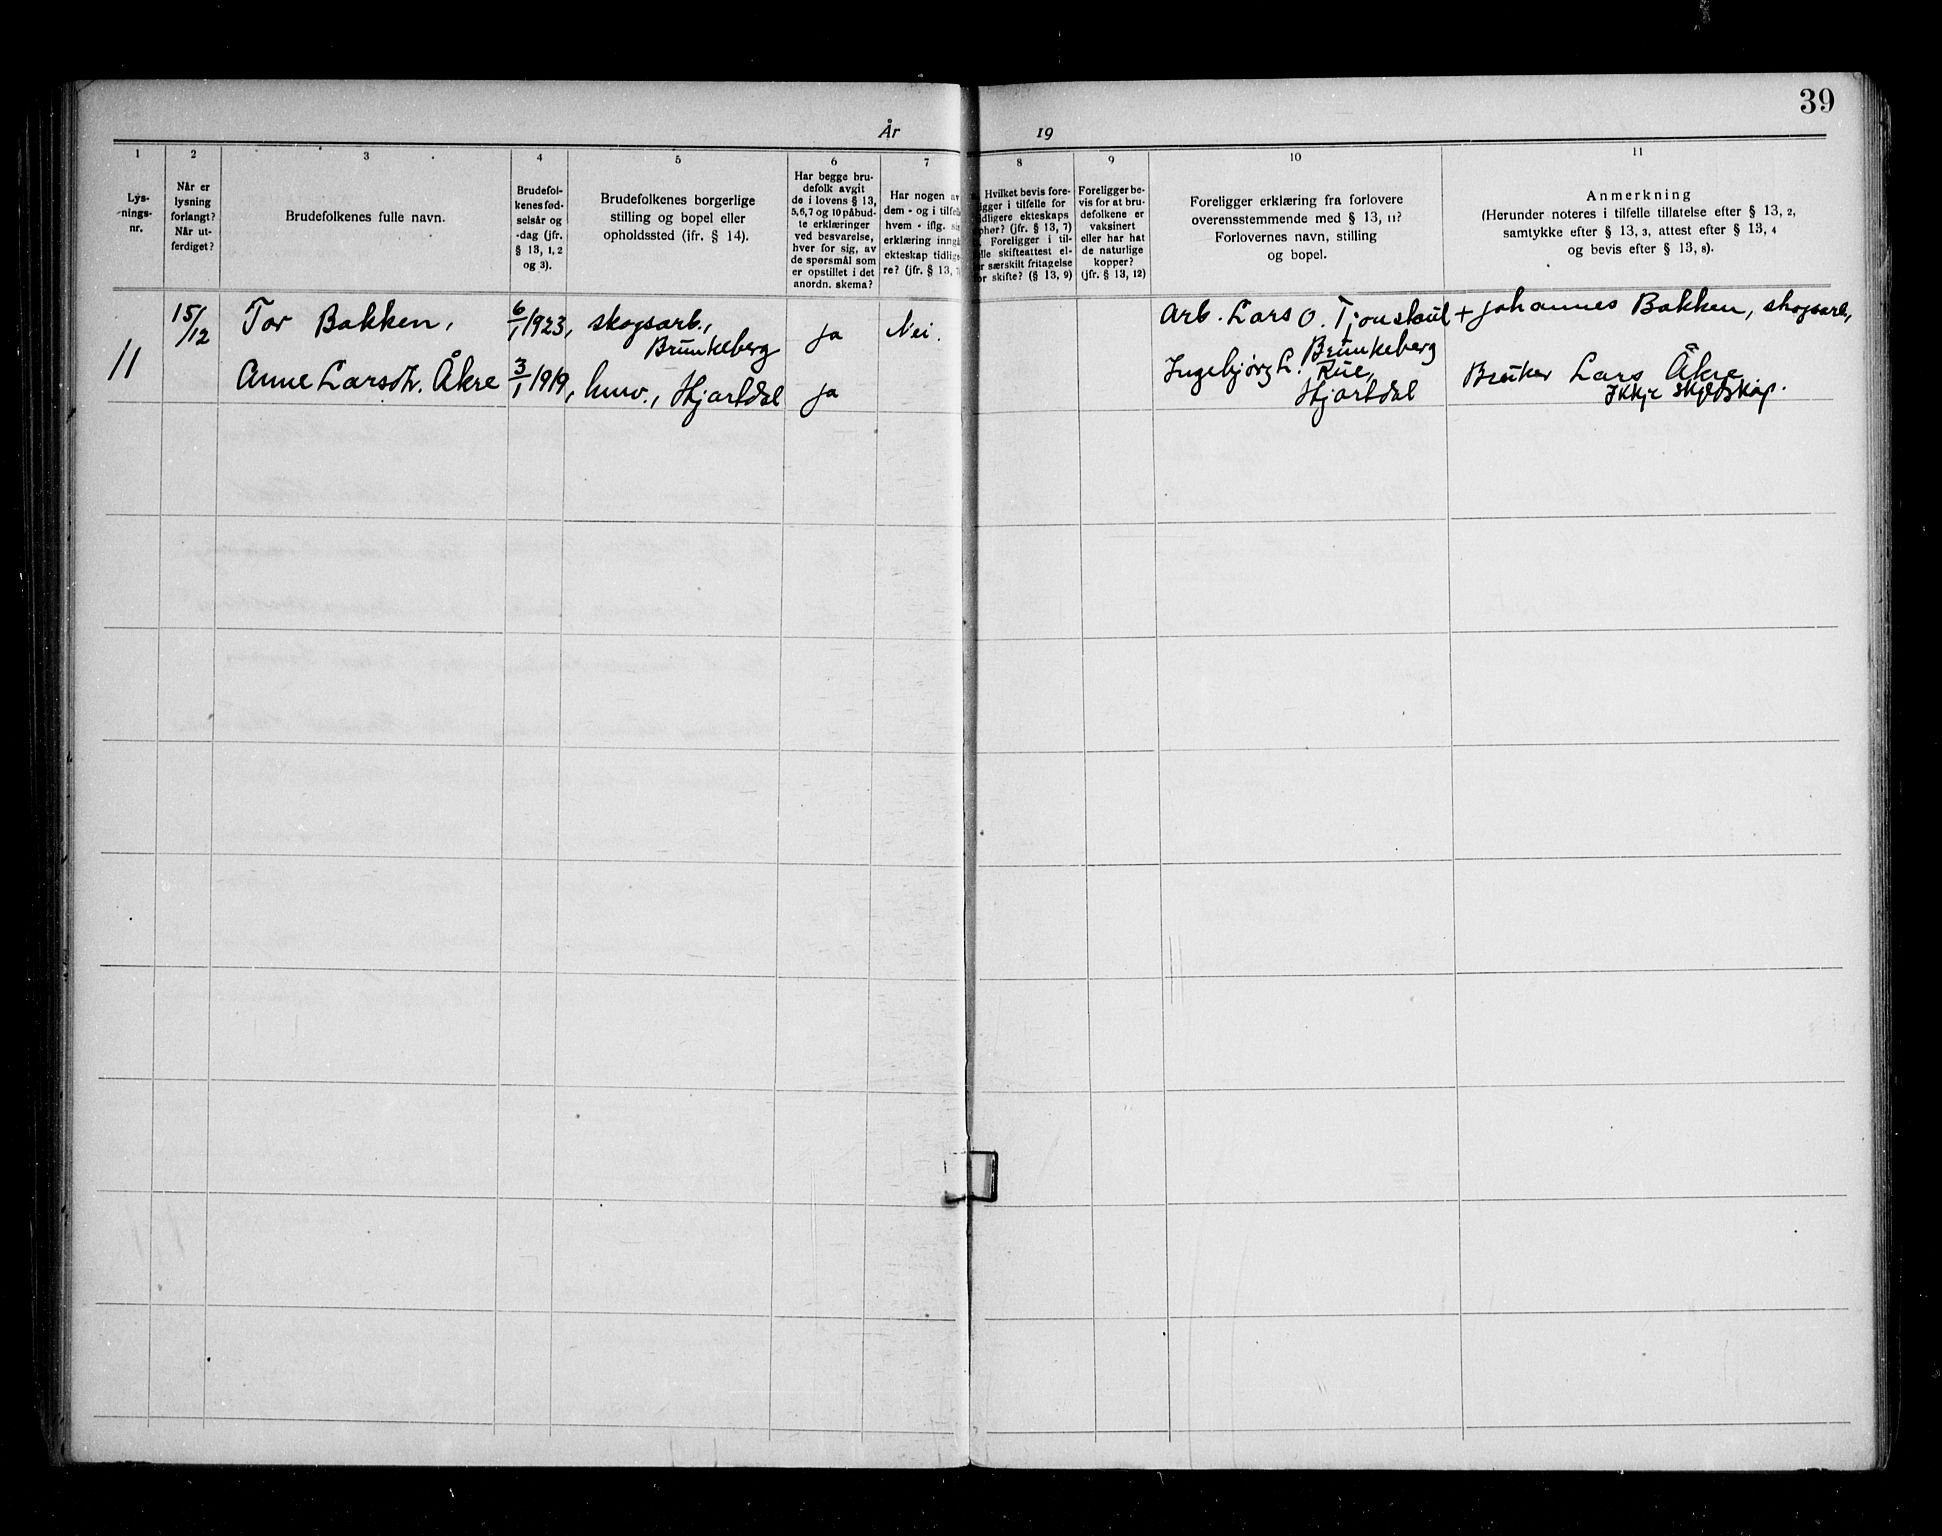 39
År 19
1
Lys-
nings-
nr.
2
Når er
lysning
forlangt?
Når ut-
ferdiget?
3
Brudefolkenes fulle navn.
4
Brudefol-
kenes fød-
selsår og
-dag (jfr.
§ 13, 1, 2
og 3).
5
Brudefolkenes borgerlige
stilling og bopel eller
opholdssted (ifr. § 14).
6
Har begge bru-
defolk avgit
de i lovens § 13,
5, 6, 7 og 10 påbud-
te erklæringer
ved besvarelse,
hver for sig, av
de spørsmål som
er opstillet i det
anordn. skema?
7
Har nogen av
dem - og i tilfelle
hvem - iflg. sin
erklæring inngå
ekteskap tidlige
re? (jfr. § 13, 7
8
Hvilket bevis fore-
igger i tilfelle for
idligere ekteskaps
phør? (jfr. § 13, 7)
Foreligger i til-
lle skifteattest el-
r særskilt fritagelse
or skifte? (§ 13, 9)
9
Foreligger be-
vis for at bru-
defolkene er
vaksinert
eller har hat
de naturlige
kopper?
(jfr. § 13, 12)
10
Foreligger erklæring fra forlovere
overensstemmende med § 13, 11?
Forlovernes navn, stilling
og bopel.
11
Anmerkning
(Herunder noteres i tilfelle tillatelse efter § 13, 2,
samtykke efter § 13, 3, attest efter § 13, 4
og bevis efter § 13, 8).
11
15/12
Tor Bakken,
6/1 1923,
skogsarb.,
Brunkeberg
ja
Nei.
Arb. Lars O. Tjonstaul
Brunkeberg
+ Johannes Bakken, skogsarb,
Anne Larsdtr. Åkre
3/1 1919,
husv., Hjartdal
ja
Ingebjørg L. Rue,
Hjartdal
Bruker Lars Åkre
Ikkje skyldskap.